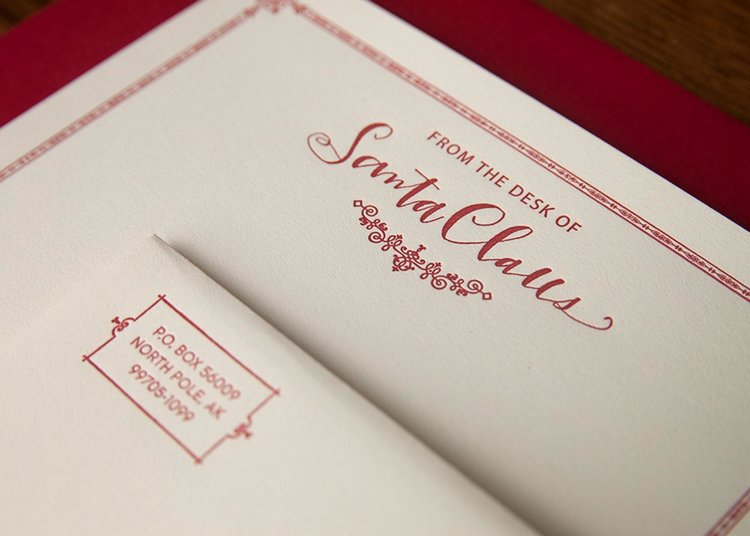 FROM THE DESK OF
Santa Claus
P.O. BOX 56009
NORTH POLE, AK
99705-1099